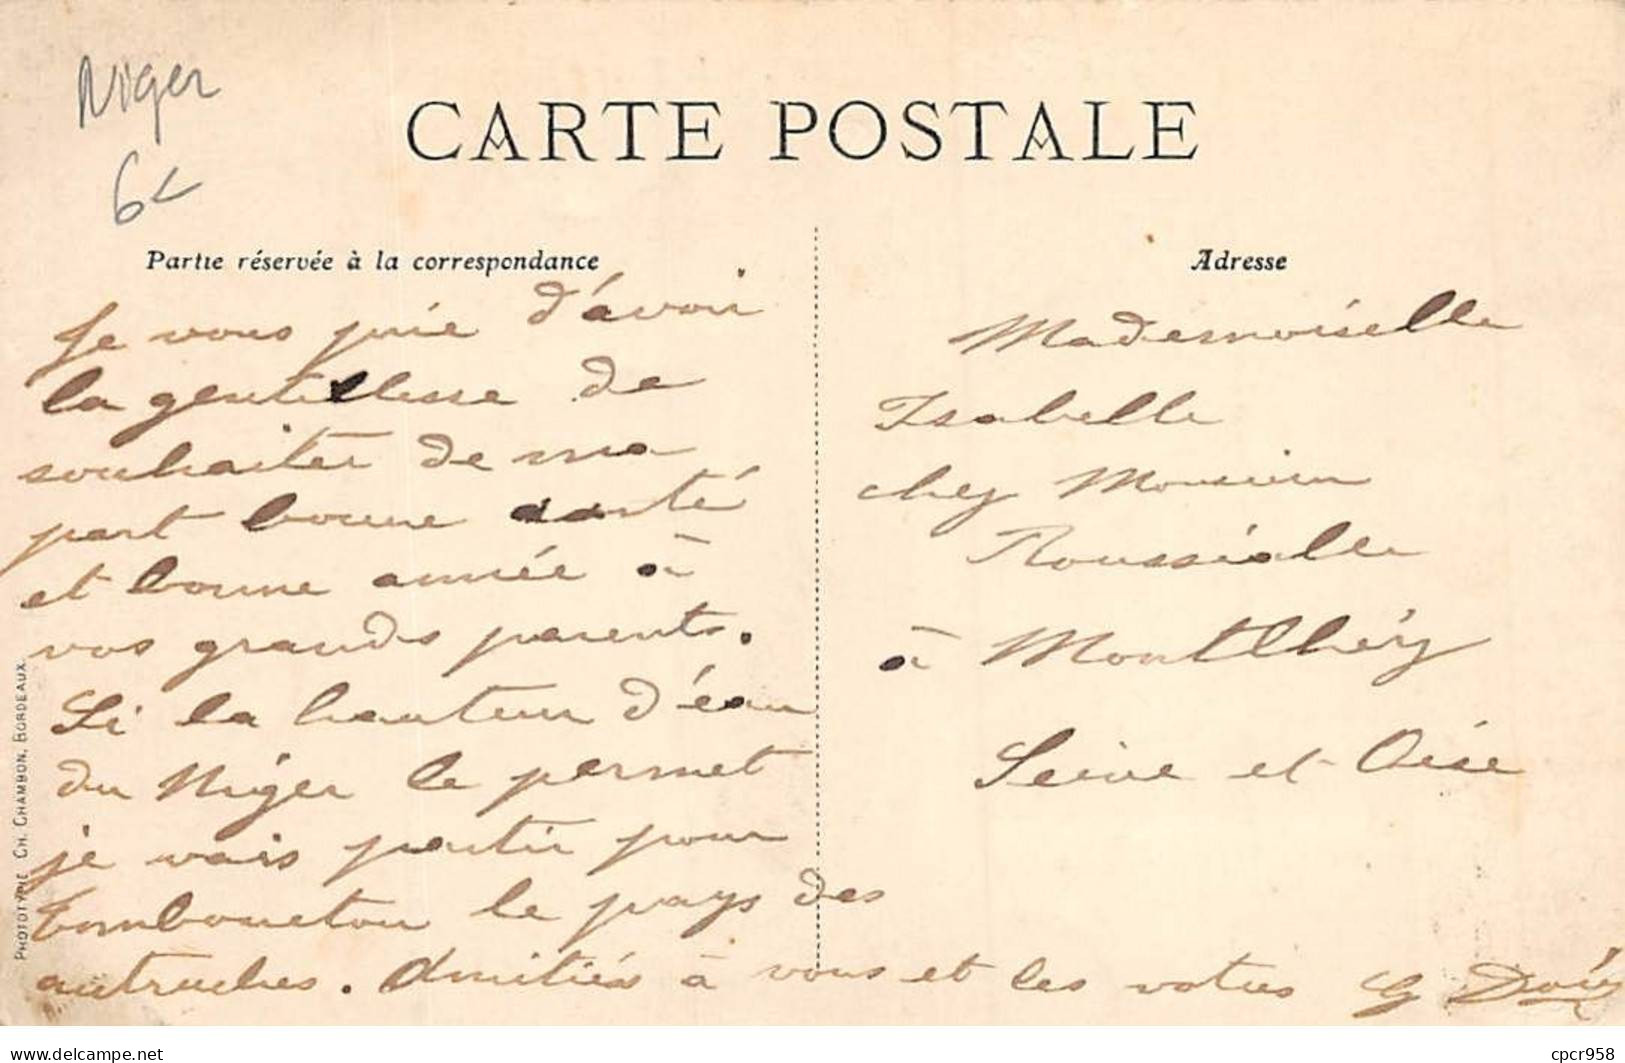 Niger
6
CARTE POSTALE
Partie réservée à la correspondance
Je vous prie d'avoir
la gentillesse de
souhaiter de ma
part bonne santé
et bonne année à
vos grands parents.
Si la hauteur d'eau
du Niger le permet
je vais partir pour
Tombouctou le pays des
autruches. Amitiés à vous et les votres
Adresse
Mademoiselle
Isabelle
chez Monsieur
à Montlhéry
Seine et Oise
PHOTOTYPIE CH. CHAMBON, BORDEAUX.
cpcr958